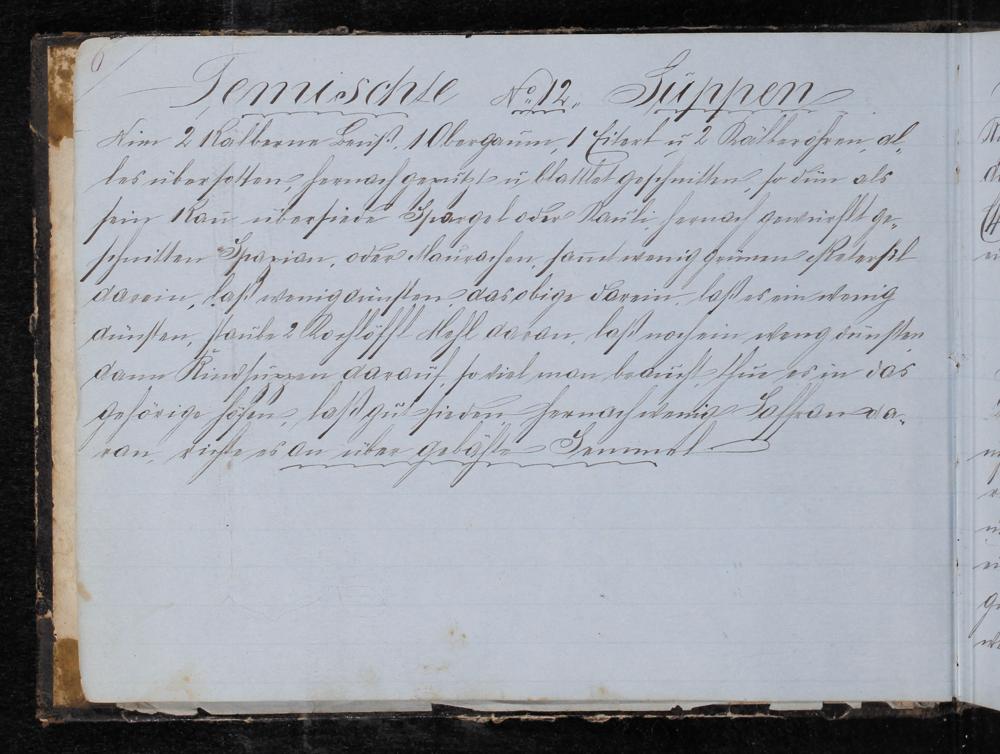 6
Gemischte No. 12. Suppen
Nim 2 Kälberne Beuß, 1 Obergaum, 1 Eitert u 2 Kälberohren, al-
les übersotten, hernach geputzt u blattlet geschnitten, so dün als
sein kan übersiede Spargel oder Kauli, hernach gewürflt ge-
schnitten, oder Maurachen, samt wenig grünen Petersil
darein, laß wenig dünsten, das obige darein, laß es ein wenig
dünsten, staube 2 Kochlöffl Mehl daran, laß noch ein weng dünsten
dann Rindsuppen darauf, so viel man braucht, thue es in das
gehörige Höfen, laß gut sieden, hernach wenig Saffran da-
ran, richte es an über gebähte Semmel